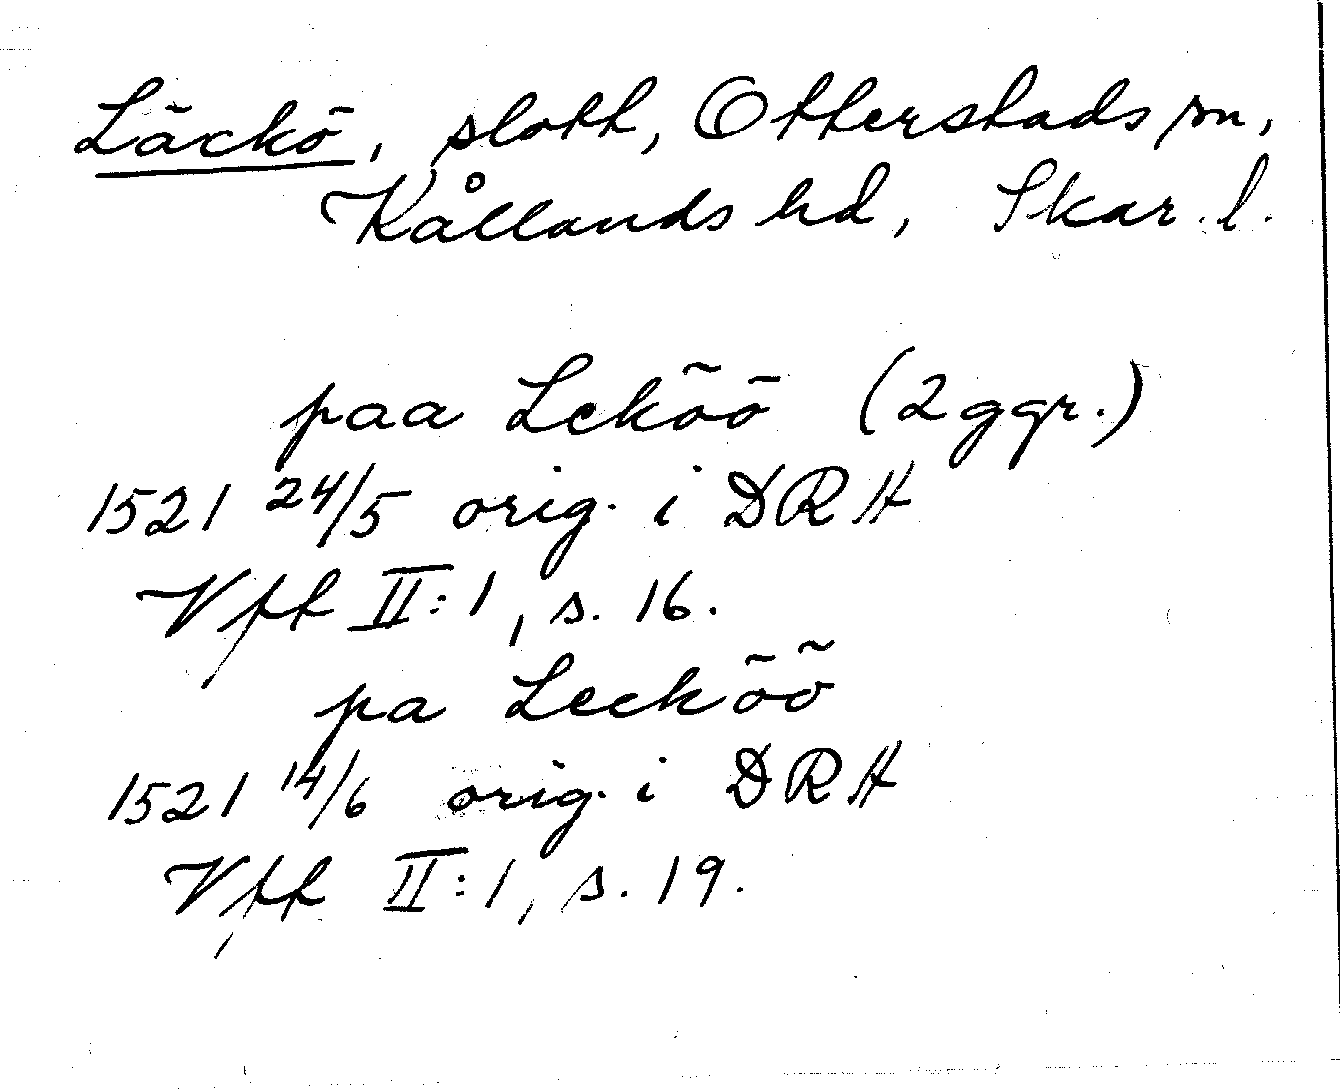 Läckö, slott, Otterstads sn,
Kållands hd, Skar. l.
paa Leköö (2 ggr.)
1521 24/5 orig. i DRA
Vft II:1, s. 16.
pa Leeköö
1521 14/6 orig. i DRA
Vft II:1, s. 19.